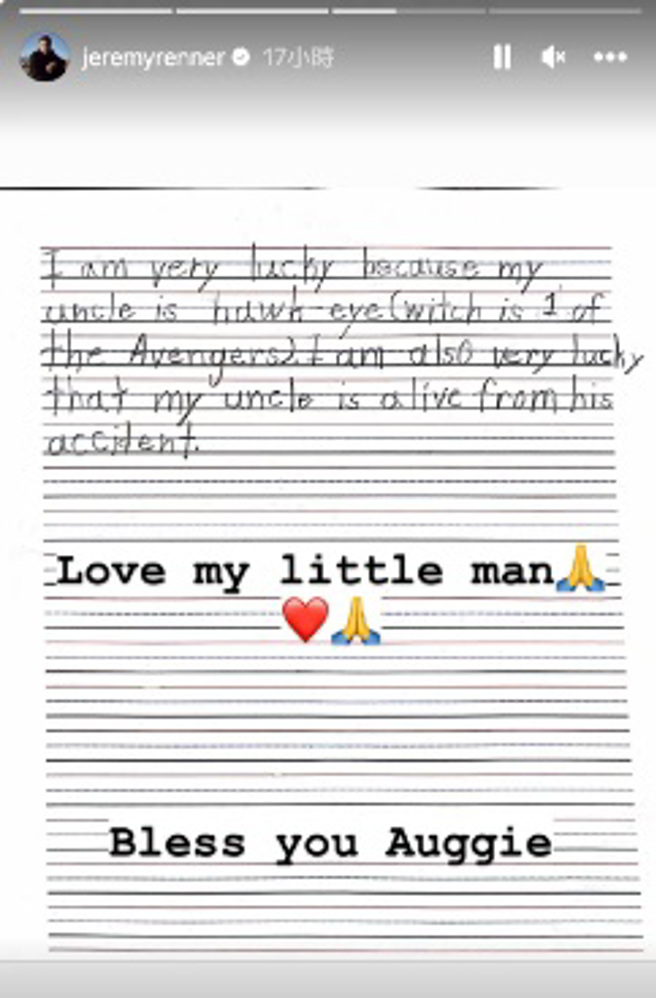 jeremyrenner 17小時
I am very lucky because my
uncle is hawk-eye (witch is 1 of
the Avengers). I am also very lucky
that my uncle is alive from his
accident.
Love my little man🙏
❤️🙏
Bless you Auggie